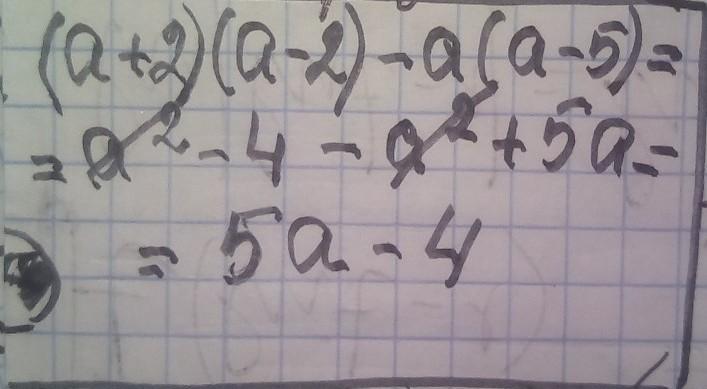 (a+2)(a-2)-a(a-5)=
=a²-4-a²+5a=
=5a-4